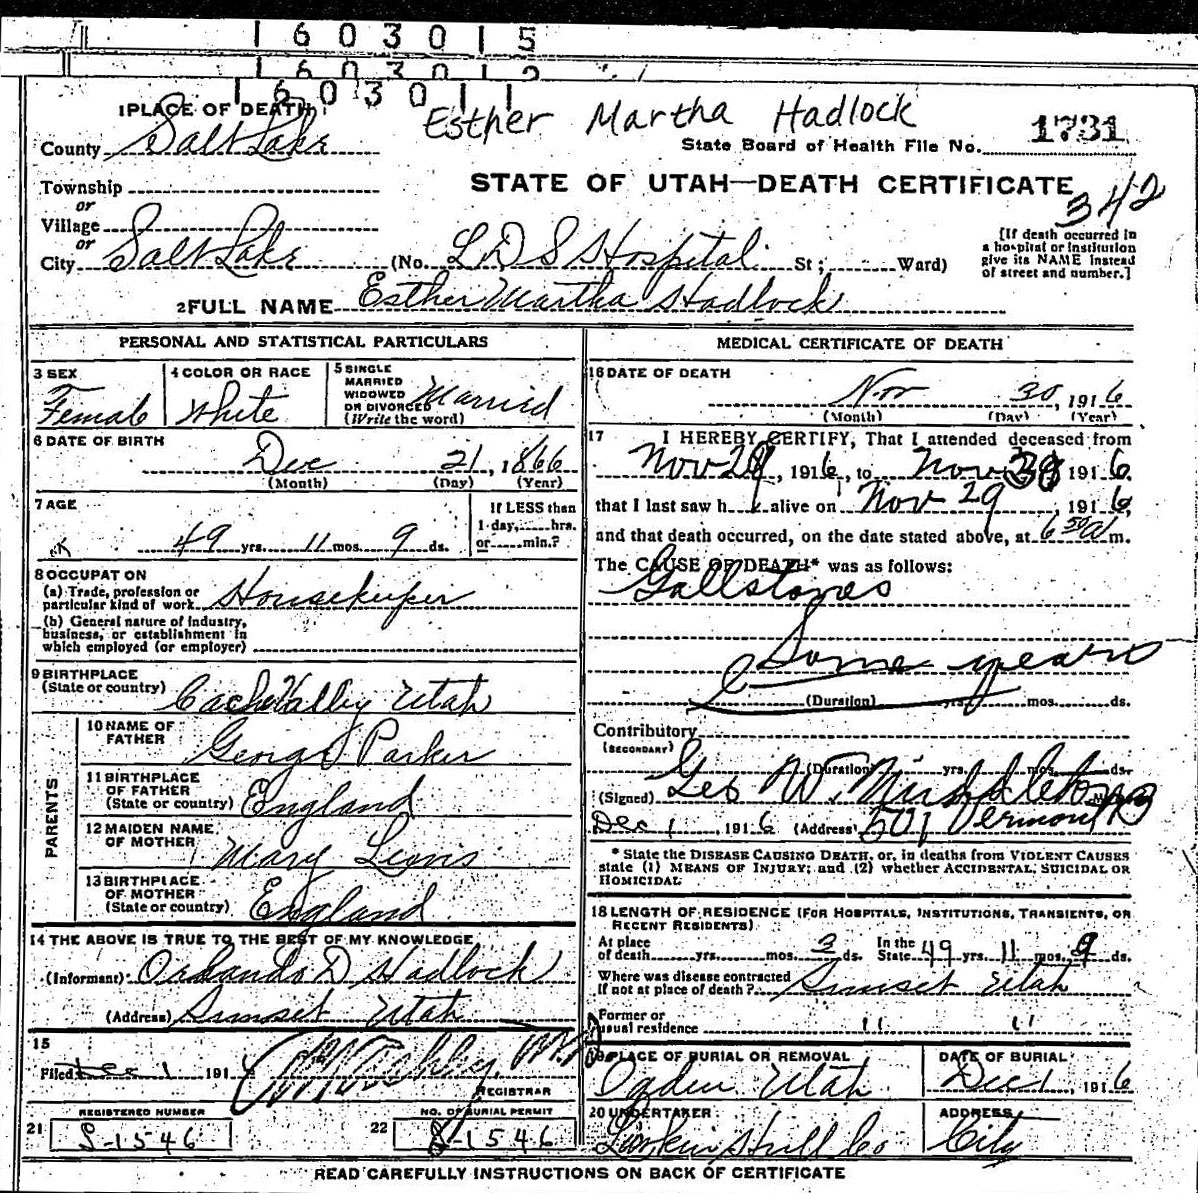 1603015
160301
1603011
1 PLACE OF DEATH
Esther Martha Hadlock
1731
County Salt Lake
State Board of Health File No.
Township
STATE OF UTAH—DEATH CERTIFICATE
342
or
Village
or
City Salt Lake (No. L D S Hospital St; Ward)
[If death occurred in
a hospital or institution
give its NAME instead
of street and number.]
2 FULL NAME Esther Martha Hadlock
PERSONAL AND STATISTICAL PARTICULARS
3 SEX
Female
4 COLOR OR RACE
White
5 SINGLE
MARRIED
WIDOWED
OR DIVORCED
(Write the word)
Married
6 DATE OF BIRTH
Dec 21, 1866
(Month) (Day) (Year)
7 AGE
49 yrs. 11 mos. 9 ds.
If LESS than
1 day, hrs.
or min.?
8 OCCUPATION
(a) Trade, profession or
particular kind of work Housekeeper
(b) General nature of industry,
business, or establishment in
which employed (or employer)
9 BIRTHPLACE
(State or country) Cache Valley Utah
PARENTS
10 NAME OF
FATHER George Parker
11 BIRTHPLACE
OF FATHER
(State or country) England
12 MAIDEN NAME
OF MOTHER Mary
13 BIRTHPLACE
OF MOTHER
(State or country) England
14 THE ABOVE IS TRUE TO THE BEST OF MY KNOWLEDGE
(Informant) Orlando D Hadlock
(Address) Sunset Utah
15
Filed Dec 1 1916
REGISTRAR
REGISTERED NUMBER
21 S-1546
NO. OF BURIAL PERMIT
22 S-1546
MEDICAL CERTIFICATE OF DEATH
16 DATE OF DEATH
Nov 30, 1916
(Month) (Day) (Year)
17 I HEREBY CERTIFY, That I attended deceased from
Nov 29, 1916, to Nov 30 1916,
that I last saw h alive on Nov 29, 1916,
and that death occurred, on the date stated above, at 6 50 a m.
The CAUSE OF DEATH* was as follows:
Gallstones
Some years
(Duration) yrs. mos. ds.
Contributory
(SECONDARY)
(Duration) yrs. mos. ds.
(Signed) Geo W. Middleton M.D.
Dec 1, 1916 (Address) 501 Vermont B
* State the DISEASE CAUSING DEATH, or, in deaths from VIOLENT CAUSES
state (1) MEANS OF INJURY; and (2) whether ACCIDENTAL, SUICIDAL OR
HOMICIDAL
18 LENGTH OF RESIDENCE (FOR HOSPITALS, INSTITUTIONS, TRANSIENTS, OR
RECENT RESIDENTS)
At place
of death yrs. mos. 3 ds.
In the
State 49 yrs. 11 mos. 9 ds.
Where was disease contracted
If not at place of death? Sunset Utah
Former or
usual residence " "
19 PLACE OF BURIAL OR REMOVAL
Ogden Utah
DATE OF BURIAL
Dec 1, 1916
20 UNDERTAKER
Larkin Hull Co
ADDRESS
City
READ CAREFULLY INSTRUCTIONS ON BACK OF CERTIFICATE